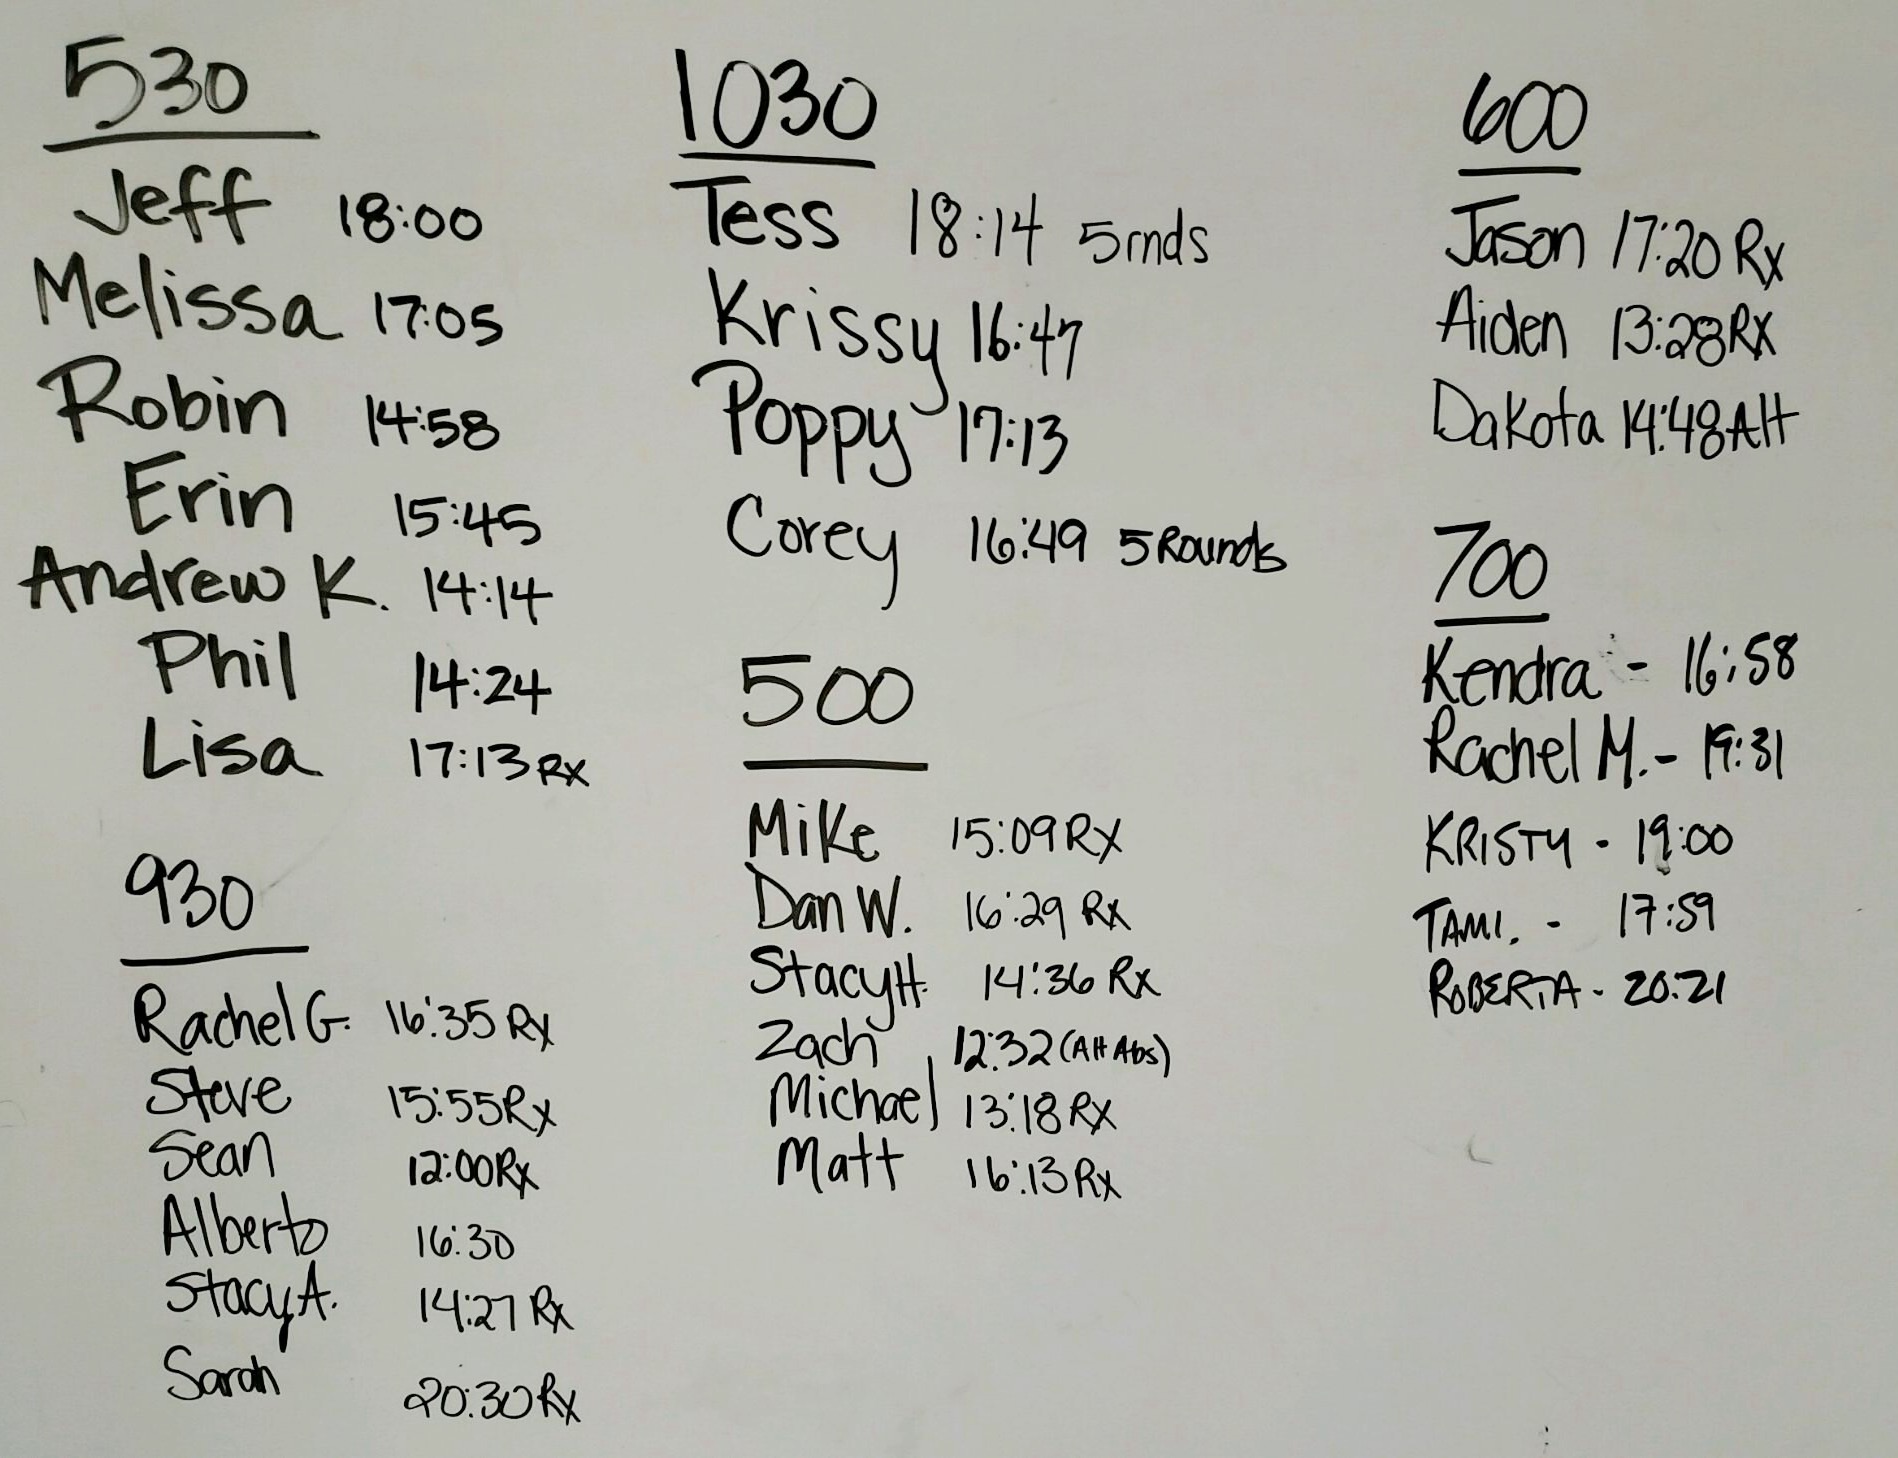 530
Jeff 18:00
Melissa 17:05
Robin 14:58
Erin 15:45
Andrew K. 14:14
Phil 14:24
Lisa 17:13 RX
930
Rachel G. 16:35 Rx
Steve 15:55 Rx
Sean 12:00 Rx
Alberto 16:30
Stacy A. 14:27 Rx
Sarah 20:30 Rx
1030
Tess 18:14 5rnds
Krissy 16:47
Poppy 17:13
Corey 16:49 5 Rounds
500
Mike 15:09 RX
Dan W. 16:29 Rx
Stacy H. 14:36 Rx
Zach 12:32 (Alt Abs)
Michael 13:18 RX
Matt 16:13 Rx
600
Jason 17:20 Rx
Aiden 13:28 RX
Dakota 14:48 Alt
700
Kendra - 16:58
Rachel M. - 19:31
KRISTY - 19:00
TAMI. - 17:59
ROBERTA - 20:21